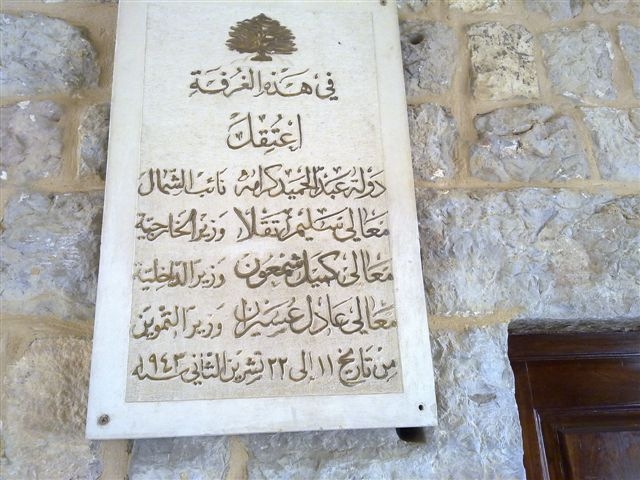 في هذه الغرفة
إعتقل
دولة عبد الحميد كرامه نائب الشمال
معالي سليم تقلا وزير الخارجية
معالي كميل شمعون وزير الداخلية
معالي عادل عسيران وزير التموين
من تاريخ ١١ إلى ٢٢ تشرين الثاني سنة ١٩٤٣